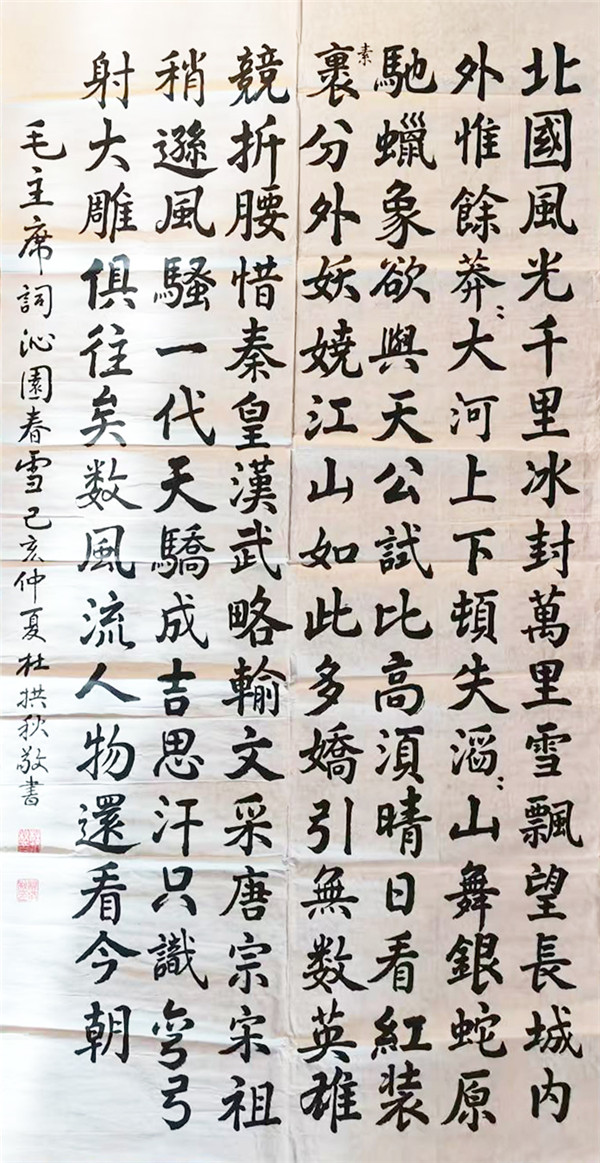 北國風光千里冰封萬里雪飄望長城内
外惟餘莽〻大河上下頓失滔〻山舞銀蛇原
馳蠟象欲與天公試比高須晴日看紅装
素裹分外妖嬈江山如此多嬌引無数英雄
競折腰惜秦皇漢武略輸文采唐宗宋祖
稍遜風騷一代天驕成吉思汗只識弯弓
射大雕俱往矣数風流人物還看今朝
毛主席詞沁園春雪己亥仲夏杜拱秋敬書